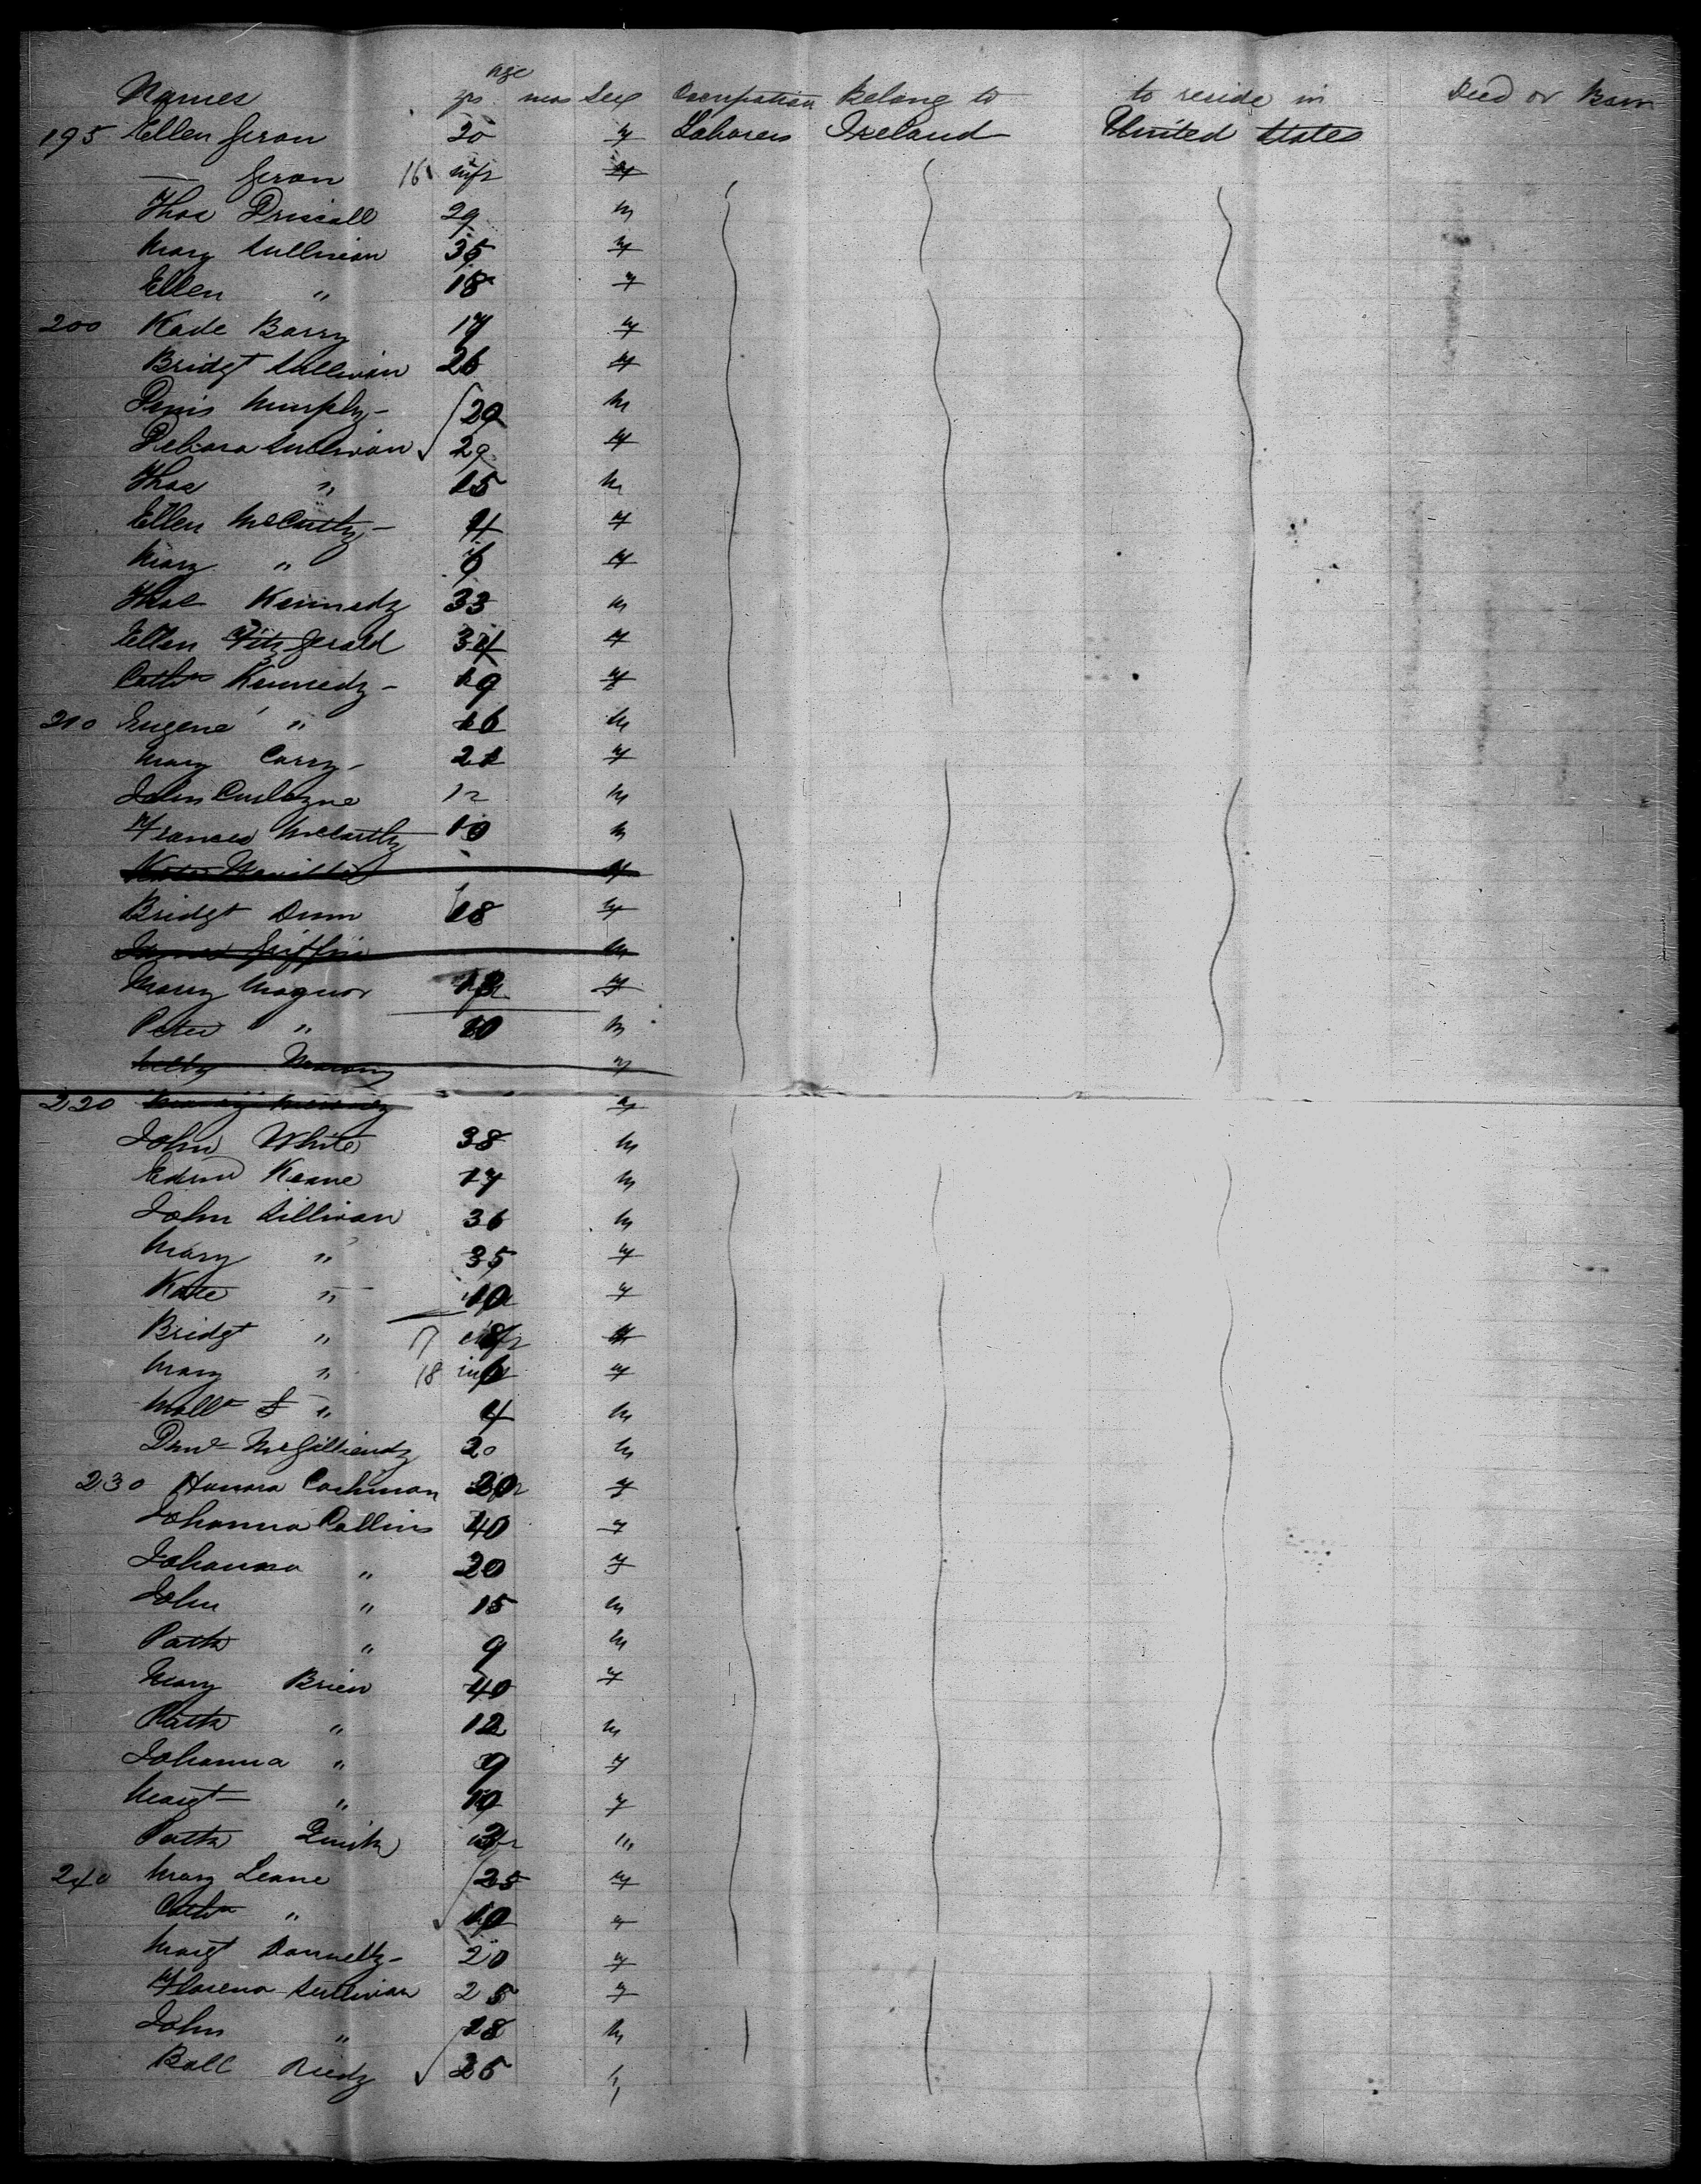 age
Names yrs mos Sex Occupation Belong to to reside in Died or Born
195 Ellen Geran 20 f Laborers Ireland United States
— Geran 16 inft f
Thos Driscoll 29 m
Mary Sullivan 35 f
Ellen " 18 f
200 Kade Barry 17 f
Bridgt Sullivan 26 f
Denis Murphy - 29 m
Debora Sullivan 29 f
Thos " 15 m
Ellen McCarthy - f
Mary " 6 f
Thos Kennedy 33 m
Ellen Fitzgerald 34 f
Cathn Kennedy - 19 f
210 Eugene " 16 m
Mary Carry - f
John 12 m
Frances McCarthy 10 m
f
Bridgt Dunn 18 f
James Griffin m
Mary Magner f
Peter " m
f
220
John White 38 m
Edmd Keane 17 m
John Sillivan 36 m
Mary " 35 f
Kate " 10 f
Bridgt " 17 f
Mary " 18 f
" 4 m
20 m
230 Hanora Cashman 20 f
Johanna Collins 40 f
Johanna " 20 f
John " 15 m
Patk " 9 m
Mary Brien 40 f
Patk " 12 m
Johanna " 9 f
Margt — " 10 f
Patk m
240 Mary Leane 25 f
Cathn " f
Margt Donnelly - 20 f
Florena Sullivan 25 f
John " 28 m
Reedy